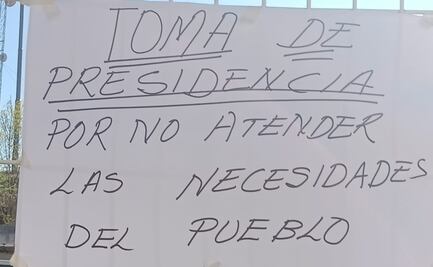 TOMA DE
PRESIDENCIA
POR NO ATENDER
LAS NECESIDADES
DEL PUEBLO